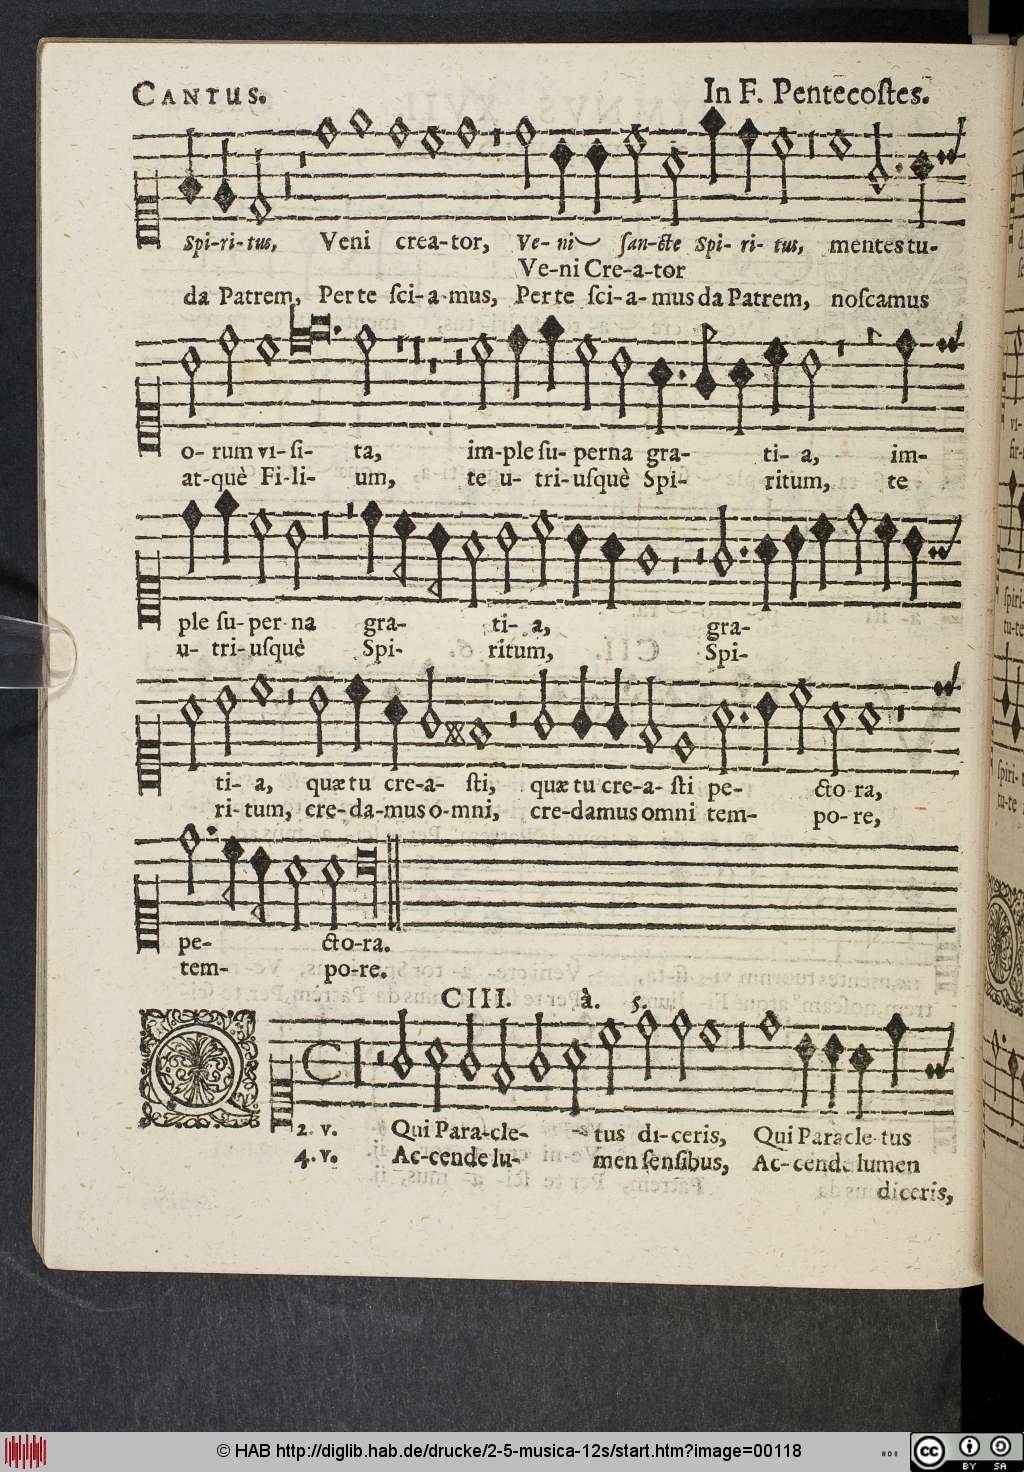 CANTUS. In F. Pentecoſtes.
Spi-ri-tus, Veni crea-tor, Ve-ni ſan-cte Spi-ri-tus, mentes tu-
Ve-ni Cre-a-tor
da Patrem, Per te ſci-a-mus, Per te ſci-a-mus da Patrem, noſcamus
o-rum vi-ſi-ta, im-ple ſu-perna gra-ti-a, im-
at-què Fi-li-um, te u-tri-uſquè Spi-ritum, te
ple ſu-per-na gra-ti-a, gra-
u-tri-uſquè Spi-ritum, Spi-
ti-a, quæ tu cre-a-ſti, quæ tu cre-a-ſti pe-cto-ra,
ri-tum, cre-da-mus o-mni, cre-damus omni tem-po-re,
pe-cto-ra.
tem-po-re.
CIII. à. 5.
Q
2. v. Qui Para-cle-tus di-ceris, Qui Paracle-tus
4. v. Ac-cende lu-men ſenſibus, Ac-cende lumen
diceris,
© HAB http://diglib.hab.de/drucke/2-5-musica-12s/start.htm?image=00118
cc BY SA